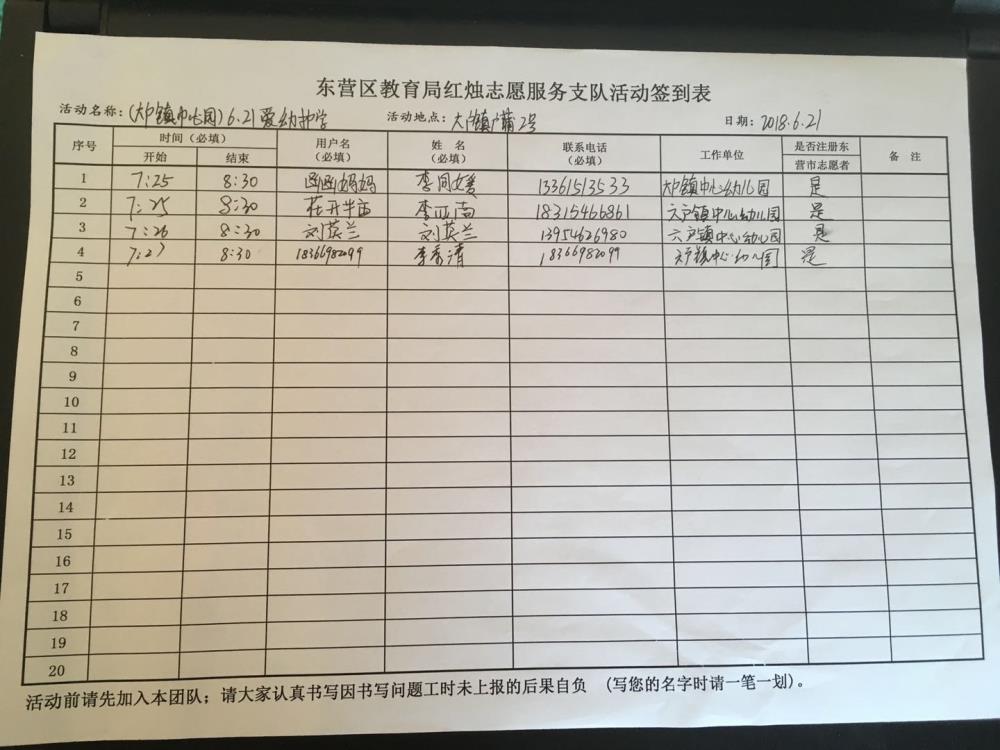 东营区教育局红烛志愿服务支队活动签到表
活动名称：(六户镇中心园)6.21爱幼护学 活动地点：六户镇广蒲2号 日期：2018.6.21
序号 时间（必填） 用户名（必填） 姓名（必填） 联系电话（必填） 工作单位 是否注册东营市志愿者 备注
开始 结束
1 7:25 8:30 函函妈妈 李同媛 13361513533 六户镇中心幼儿园 是
2 7:25 8:30 花开半亩 李亚南 18315466861 六户镇中心幼儿园 是
3 7:26 8:30 刘英兰 刘英兰 13954626980 六户镇中心幼儿园 是
4 7:27 8:30 18366982099 李秀清 18366982099 六户镇中心幼儿园 是
5
6
7
8
9
10
11
12
13
14
15
16
17
18
19
20
活动前请先加入本团队；请大家认真书写因书写问题工时未上报的后果自负 （写您的名字时请一笔一划）。